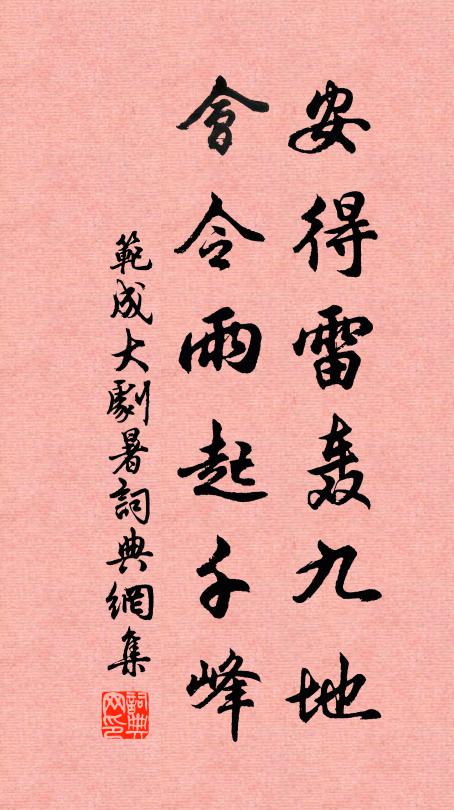 安得雷轰九地
會令雨起千峰
範成大劇暑詞典網集
詞典网印